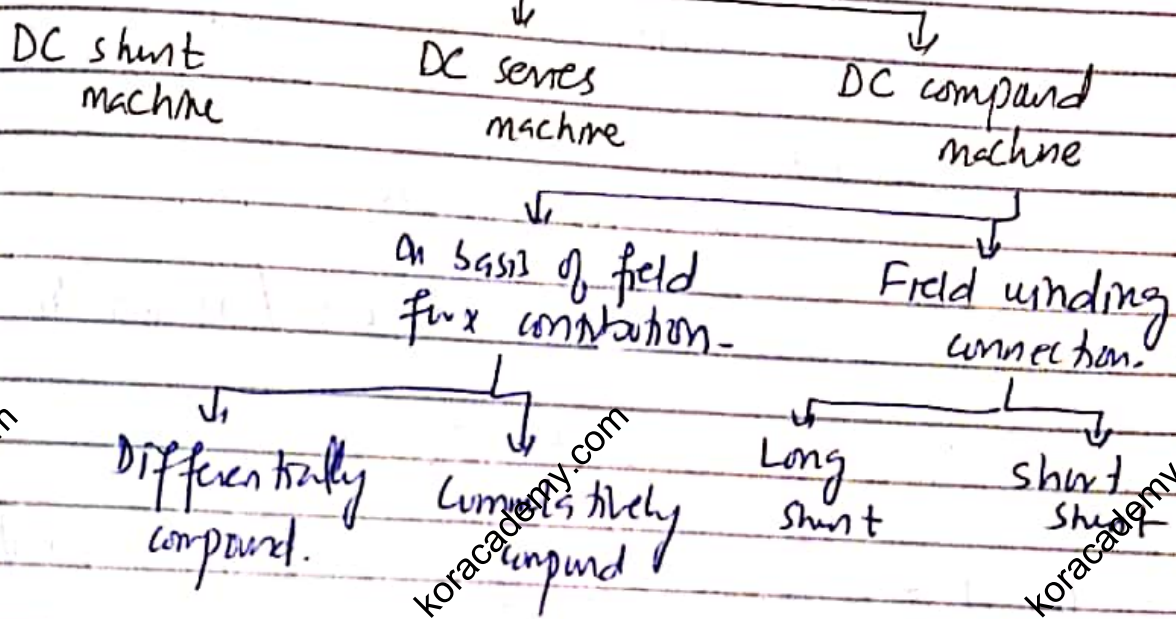 DC shunt
machine
DC series
machine
DC compound
machine
On basis of field
flux contribution-
Field winding
connection.
Differentially
compound.
Cummulatively
compund
Long
shunt
Short
shunt
koracademy.com
koracademy
m